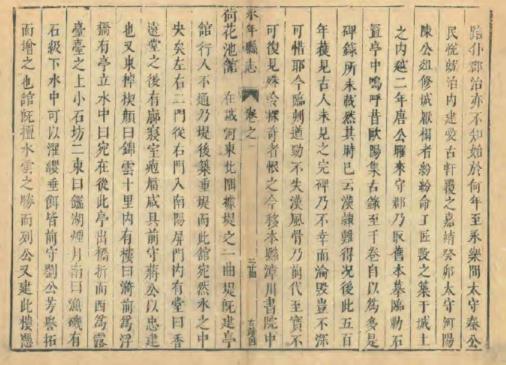 踣仆郡治亦不知始於何年至永樂間太守秦公
民悅於治內建愛古軒覆之嘉靖癸卯太守河陽
陳公俎修城厭搨者紛紛命工匠毀之築于城土
之內越二年唐公曜來守郡乃取舊本摹臨勒石
置亭中嗚呼昔歐陽集古錄至千卷自以為多是
碑錄所未載然其時已云漢隸難得況後此五百
年獲見古人未見之完碑乃不幸而淪毀豈不深
可惜耶今臨刻遒勁不失漢風骨乃前代至寶不
可復見殊令探奇者恨之今移本縣漳川書院中
永年縣志 卷之一
荷花池館 在滏河東北隅據堤之一曲堤旣建亭
館行人不通乃堤後築重堤而此館宛然水之中
央矣左右二門從右門入南陽屏門內有堂曰香
遠堂之後有廊寢室庖湢咸具前守蔣公以忠建
也又東棹楔顏曰錦雲十里內有樓曰漪前為浮
橋有亭立水中曰宛在後此亭出橋折而西為露
臺臺之上小石坊二東曰鑑湖煙月南曰漁磯有
石級下水中可以濯纓垂餌皆前守劉公芳譽拓
而增之也館旣擅水雲之勝而列公又建此樓應